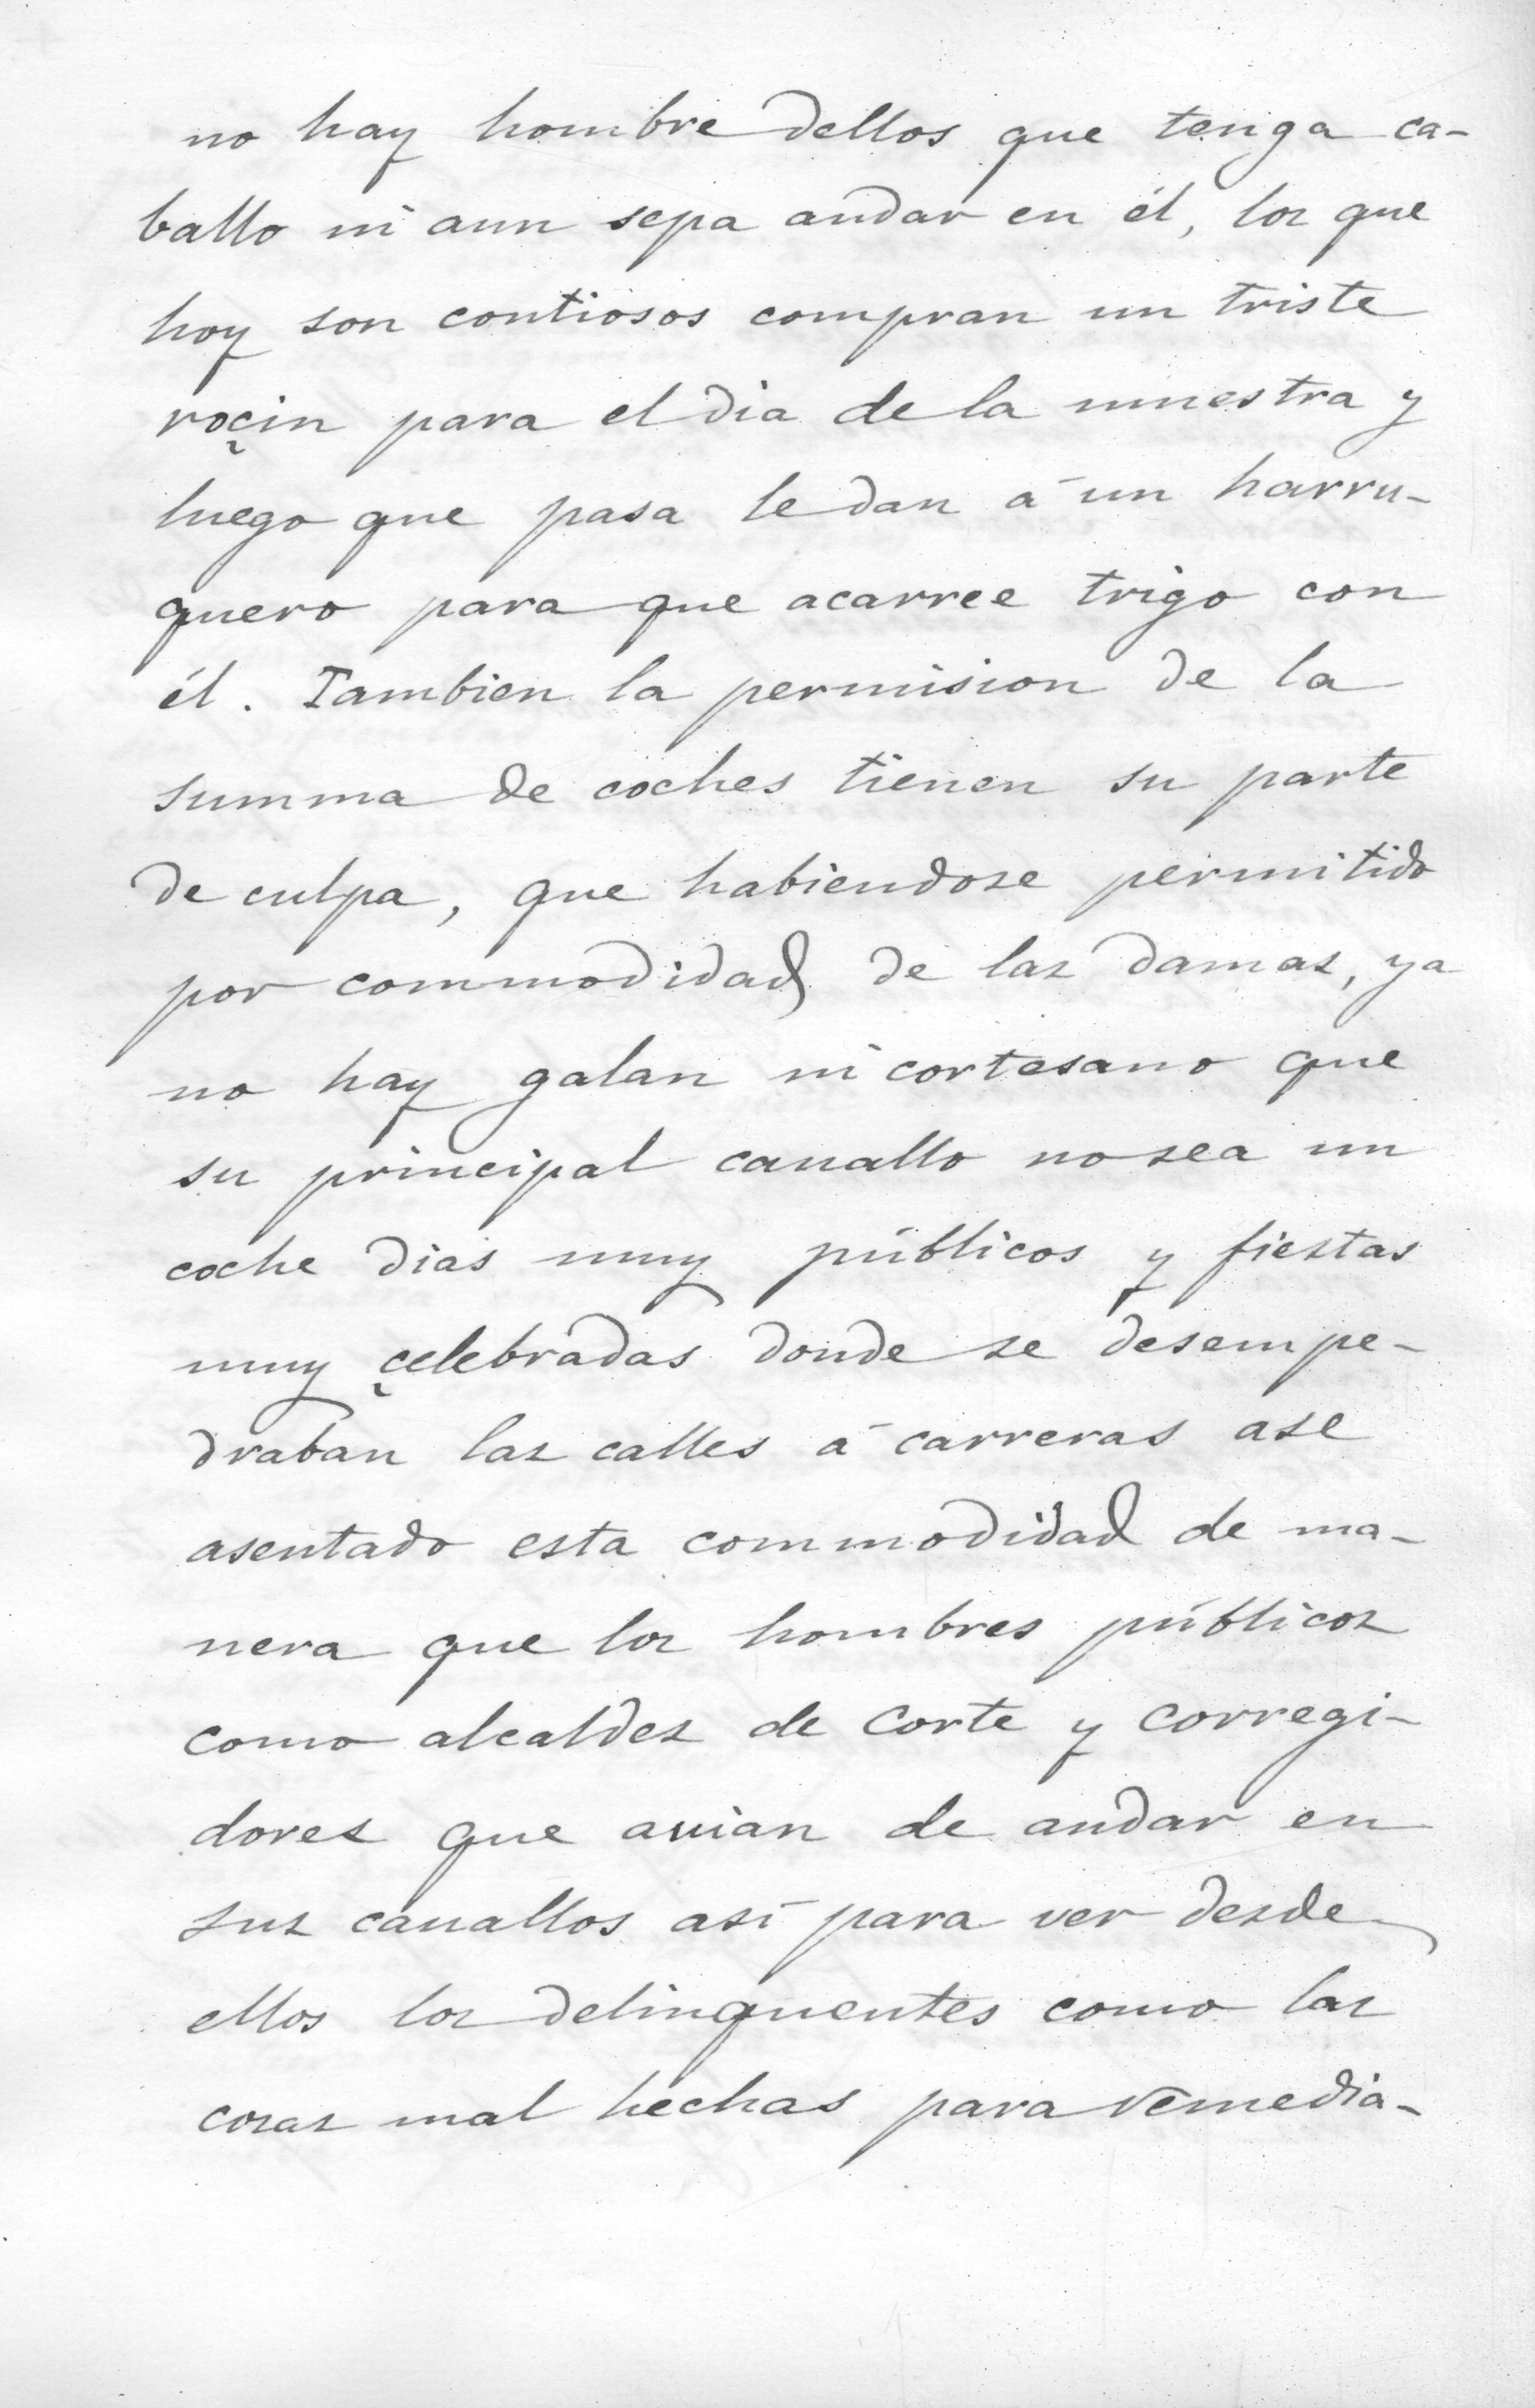 no hay hombre dellos que tenga ca-
ballo ni aun sepa andar en él, los que
hoy son contiosos compran un triste
roçin para el dia de la muestra y
luego que pasa le dan á un harru-
quero para que acarree trigo con
él. Tambien la permision de la
summa de coches tienen su parte
de culpa, que habiendose permitido
por commodidad de las damas, ya
no hay galan ni cortesano que
su principal cauallo no sea un
coche dias muy públicos y fiestas
muy çelebradas donde se desempe-
draban las calles á carreras ase
asentado esta commodidad de ma-
nera que los hombres públicos
como alcaldes de corte y corregi-
dores que auian de andar en
sus cauallos así para ver desde
ellos los delinquentes como las
cosas mal hechas para remedia-